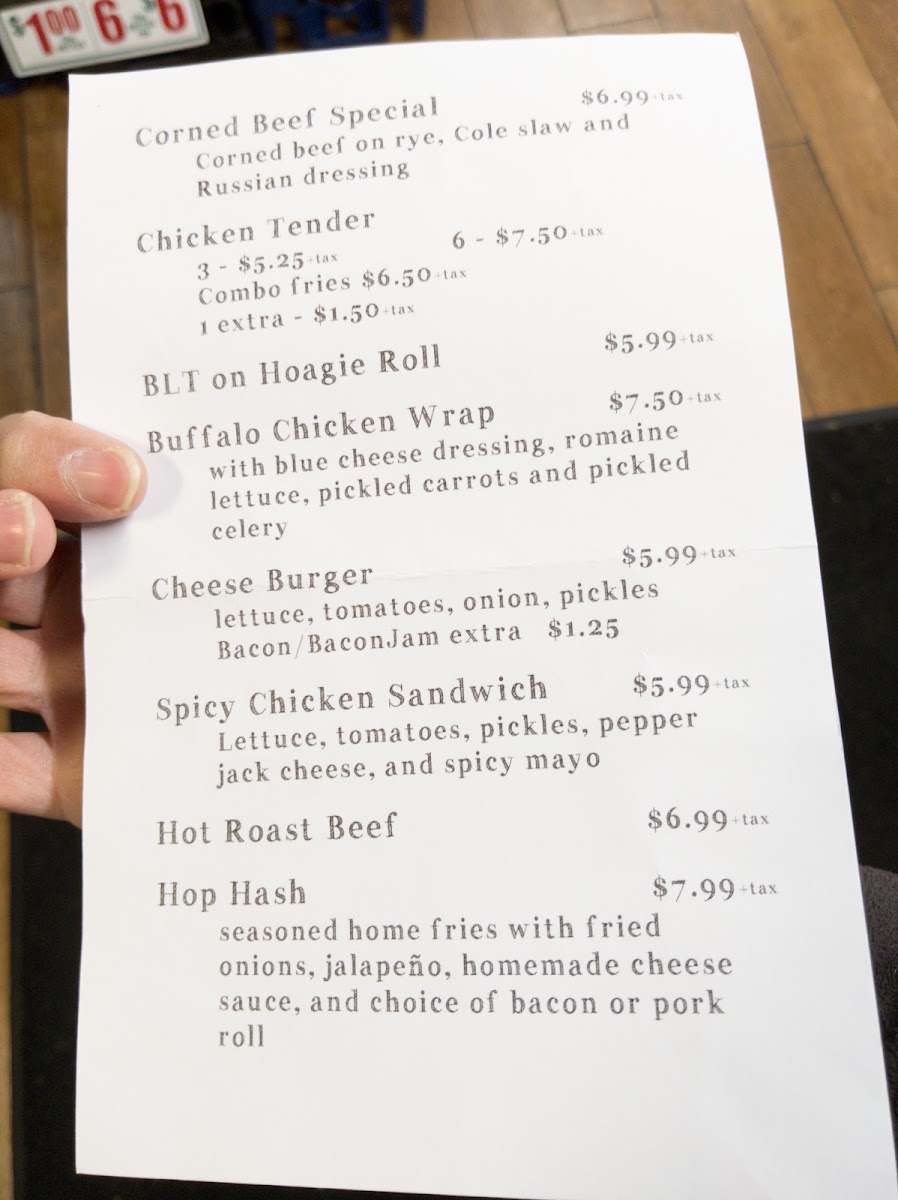 $1.00 6 6
Corned Beef Special $6.99+tax
Corned beef on rye, Cole slaw and
Russian dressing
Chicken Tender
3 - $5.25+tax 6 - $7.50+tax
Combo fries $6.50+tax
1 extra - $1.50+tax
BLT on Hoagie Roll $5.99+tax
Buffalo Chicken Wrap $7.50+tax
with blue cheese dressing, romaine
lettuce, pickled carrots and pickled
celery
Cheese Burger $5.99+tax
lettuce, tomatoes, onion, pickles
Bacon/BaconJam extra $1.25
Spicy Chicken Sandwich $5.99+tax
Lettuce, tomatoes, pickles, pepper
jack cheese, and spicy mayo
Hot Roast Beef $6.99+tax
Hop Hash $7.99+tax
seasoned home fries with fried
onions, jalapeño, homemade cheese
sauce, and choice of bacon or pork
roll